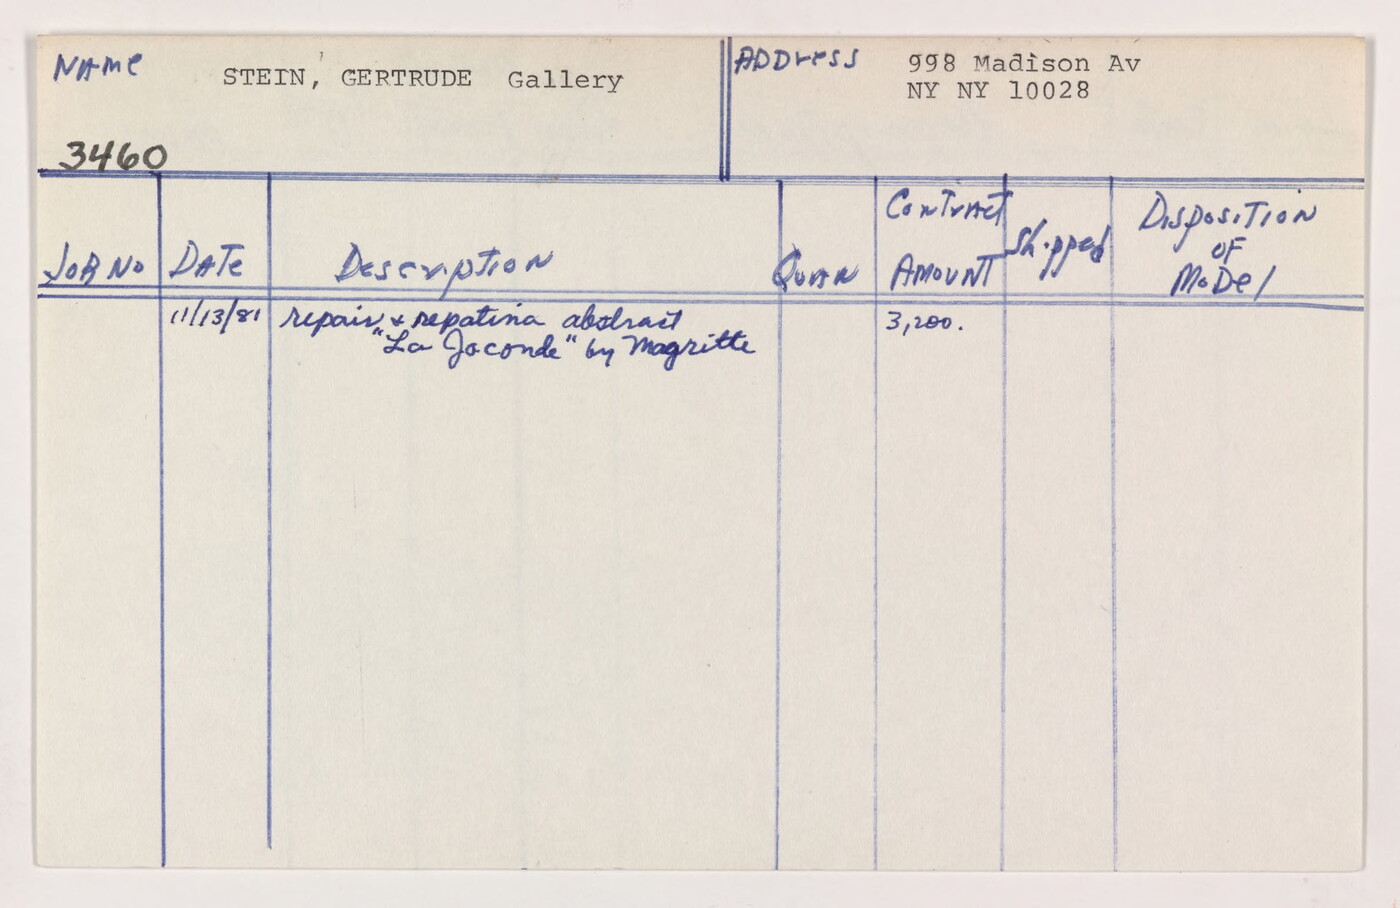 NAME STEIN, GERTRUDE Gallery ADDRESS 998 Madison Av
NY NY 10028
3460
JOB NO DATE Description QUAN Contract AMOUNT Shipped DISPOSITION OF MODEL
11/13/81 repair & repatina abstract 3,200.
"La Joconde" by Magritte